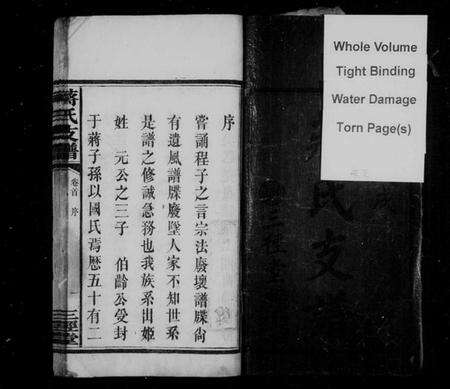 Whole Volume
Tight Binding
Water Damage
Torn Page(s)
氏支
序
嘗誦程子之言宗法廢壞譜牒尚
有遺風譜牒廢墜人家不知世系
是譜之修誠急務也我族系出姬
姓 元公之三子 伯齡公受封
于蔣子孫以國氏焉歷五十有二
蔣氏支譜
卷首 序
三徑堂